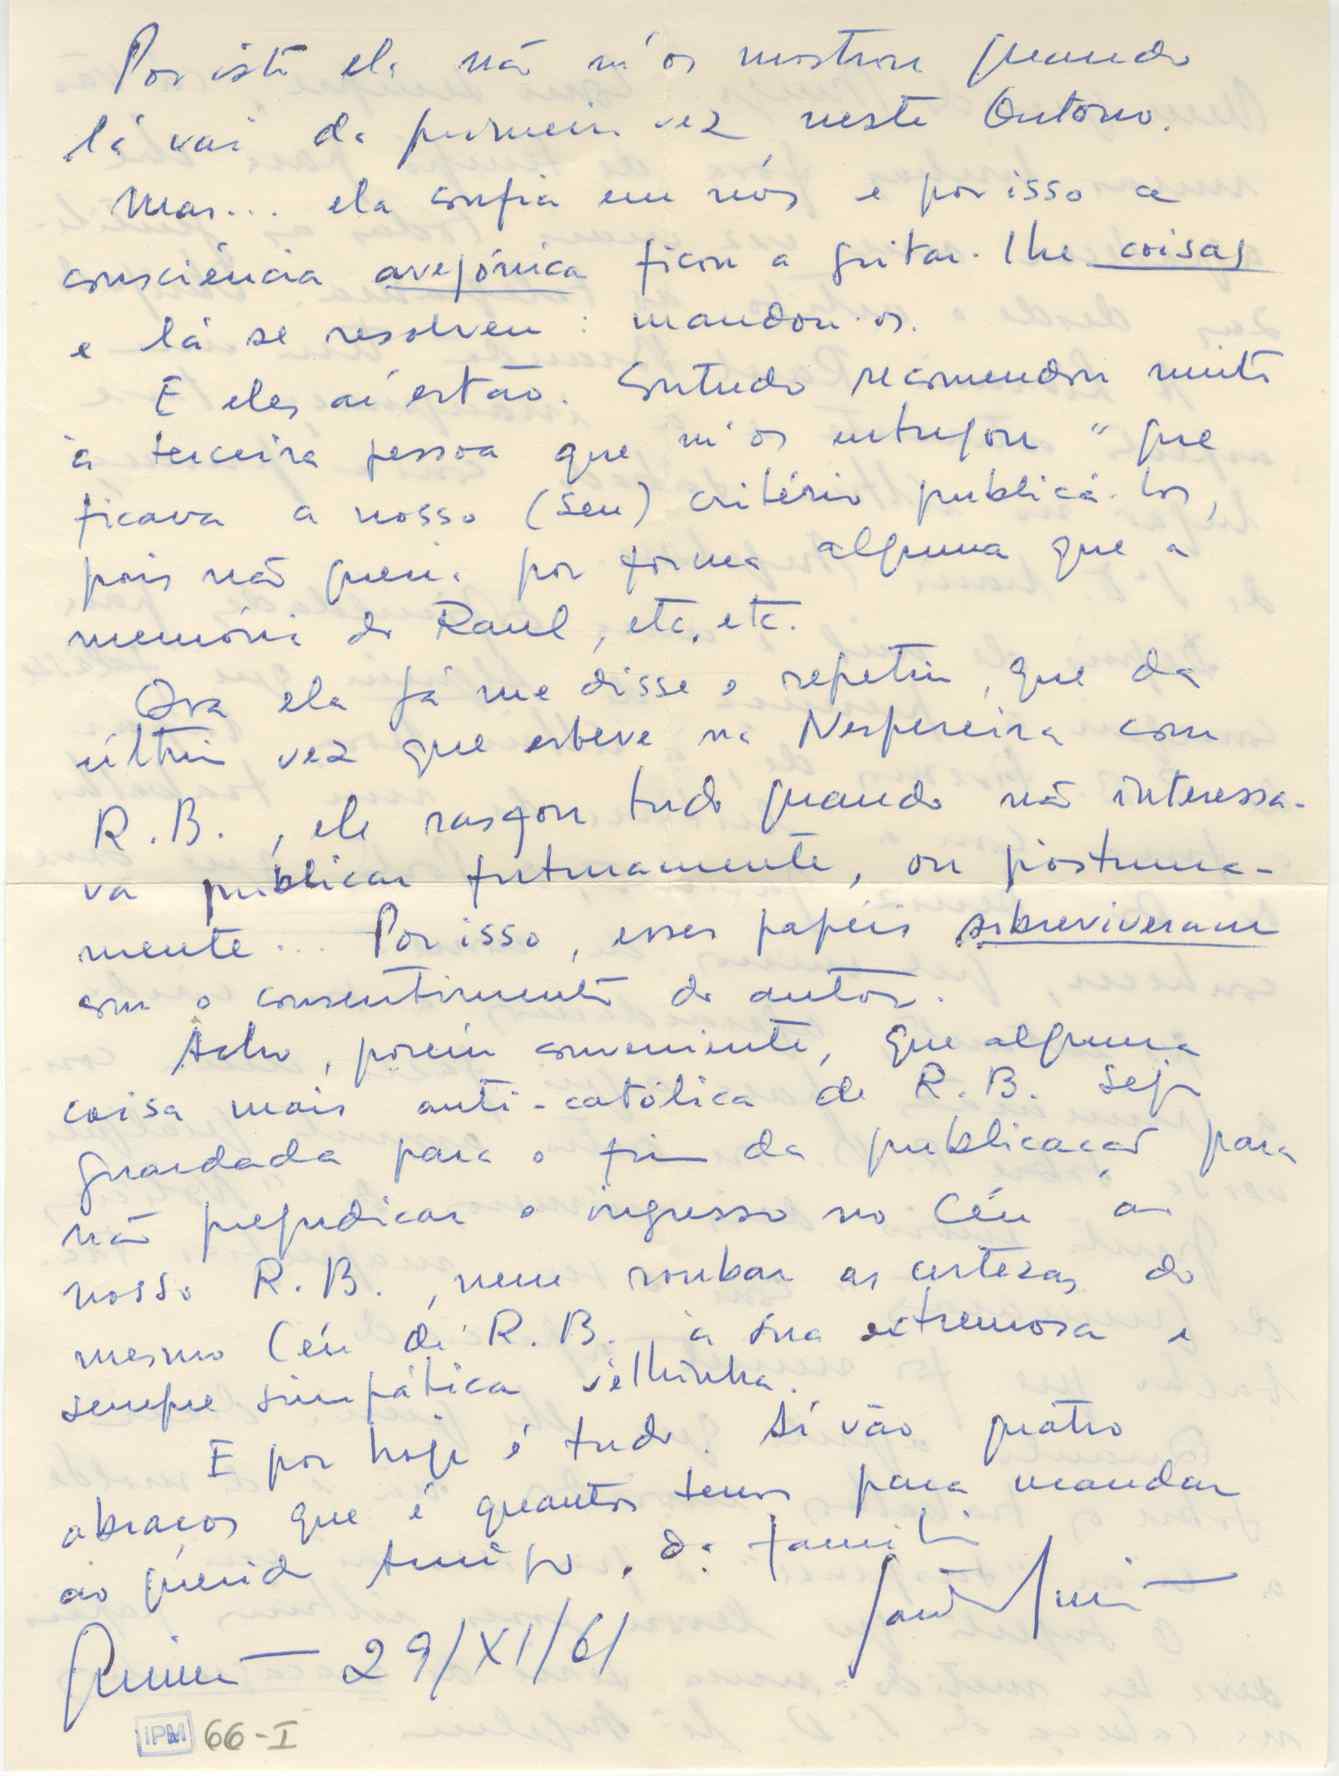 Por isto ela não m'os mostrou quando
lá vai da primeira vez neste Outono.
Mas... ela confia em nós e por isso a
consciência avejónica ficou a gritar-lhe coisas
e lá se resolveu: mandou-os.
E eles aí estão. Contudo recomendou muito
à terceira pessoa que m'os entregou "que
ficava a nosso (seu) critério publicá-los,
pois não queria por forma alguma que a
memória do Raul, etc, etc.
Ora ela já me disse e repetiu, que da
última vez que esteve na Nespereira com
R.B., ele rasgou tudo quando não interessa-
va publicar futuramente, ou póstuma-
mente... Por isso, esses papéis sobreviveram
com o consentimento do autor.
Acho, porém conveniente, que alguma
coisa mais anti-católica de R.B. seja
guardada para o fim da publicação para
não prejudicar o ingresso no Céu ao
nosso R.B., nem roubar as certezas do
mesmo Céu de R.B., à sua extremosa e
sempre simpática velhinha.
E por hoje é tudo. Aí vão quatro
abraços que é quantos temos para mandar
ao querido Amigo, da família
29/XI/61
IPM 66-I